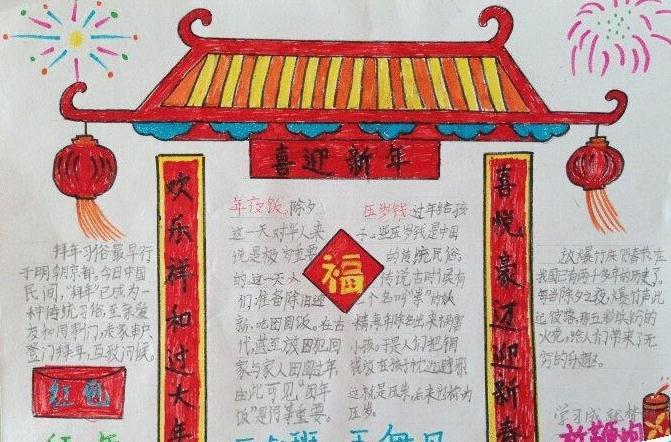 喜迎新年
欢乐祥和过大年
喜悦豪迈迎新春
福
拜年习俗最早行
于明朝京都,今日中国
民间,"拜年"已成为一
种传统习俗,至亲爱
友和同事门
登门拜年,互致问候。
红包
年夜饭,除夕
这一天对华人来
说是极为重要
的,这一天人
们,准备除旧迎
新,吃团圆饭。在古
代,甚至放囚犯回
家与家人团圆过年,
由此可见,"团年
饭"是何等重要。
压岁钱,过年给孩
子一些压岁钱是中国
的传统民俗,
传说古时候有
一个名叫"祟"的妖
除夕出来祸害
小孩。于是人们把铜
钱放在孩子枕边避邪
这就是压祟,后来
压岁。
放爆竹庆贺春节在
我国已有两千多年的历史了,
每当除夕之夜,爆竹声此
起彼落,那五彩缤纷的
火光,给人们带来了无
穷的乐趣。